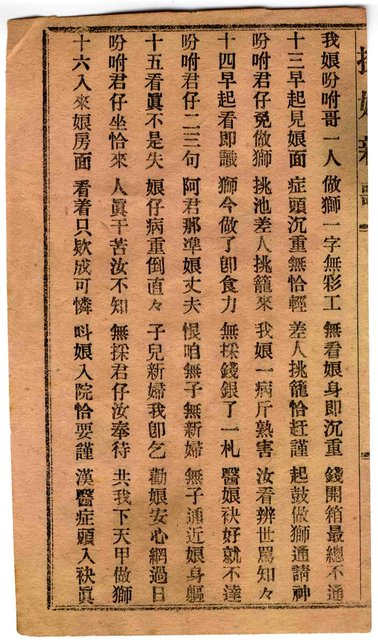 我娘吩咐哥一人 做獅一字無彩工 無看娘身即沉重 錢開箱最總不通
十三早起見娘面 症頭沉重無恰輕 差人挑籠恰赶謹 起鼓做獅通請神
吩咐君仔免做獅 挑池差人挑籠來 我娘一病斤熟害 汝看辨世罵知々
十四早起看即識 獅今做了卽食力 無採錢銀了一札 醫娘袂好就不達
吩咐君仔二三句 阿君那準娘丈夫 恨咱無子無新婦 無子通近娘身軀
十五看眞不是失 娘仔病重倒直々 子兒新婦我卽乞 勸娘安心網過日
吩咐君仔坐恰來 人眞干苦汝不知 無採君仔汝奉待 共我下天甲做獅
十六入來娘房面 看着只欵成可憐 呌娘入院恰要謹 漢醫症頭入袂眞